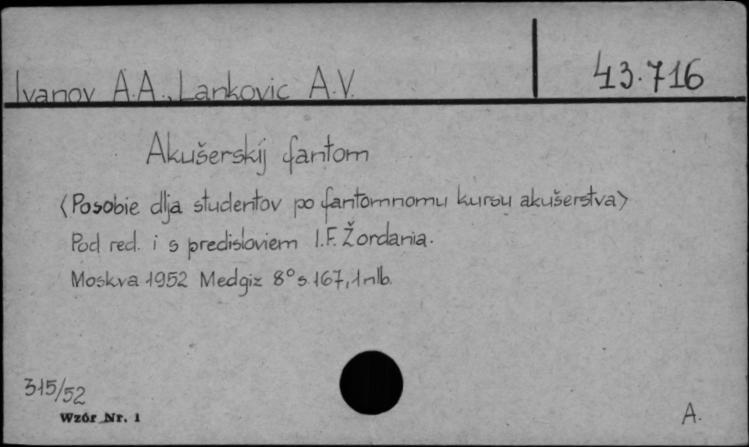 Ivanov A.A., Lankovic A.V.
43.716
Akušerskij fantom
<Posobie dlja studentov po fantomnomu kursu akušerstva>
Pod red. i s predisloviem I.F. Žordania.
Moskva 1952 Medgiz 8° s.167, 1 nlb.
315/52
Wzór Nr. 1
A.